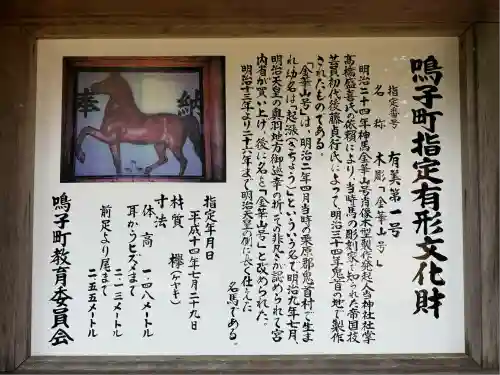 鳴子町指定有形文化財
指定番号 有美第一号
名称 木彫「金華山号」
明治三十四年神馬金華山号肖像木型製作発起人当神社社掌
高橋盛喜氏の依頼により、当時馬の彫刻家で知られた帝国技
芸員初代後藤貞行氏によって、明治三十四年鬼首の地で製作
されたものである。
「金華山号」は、明治二年四月当時の栗原郡鬼首村で生ま
れ、幼名は「起漲(きちょう)」といういう名で明治九年七月、
明治天皇の奥羽地方御巡幸の折、その非凡さが認められて宮
内省が買い上げ、後に名を「金華山号」と改められた。
明治十三年より二十六年まで明治天皇の側近く仕えた
名馬である。
奉納
指定年月日
平成十四年七月二十九日
材質 欅(ケヤキ)
寸法
体高 一・四八メートル
耳からヒズメまで
二・一三メートル
前足より尾まで
二・五五メートル
鳴子町教育委員会